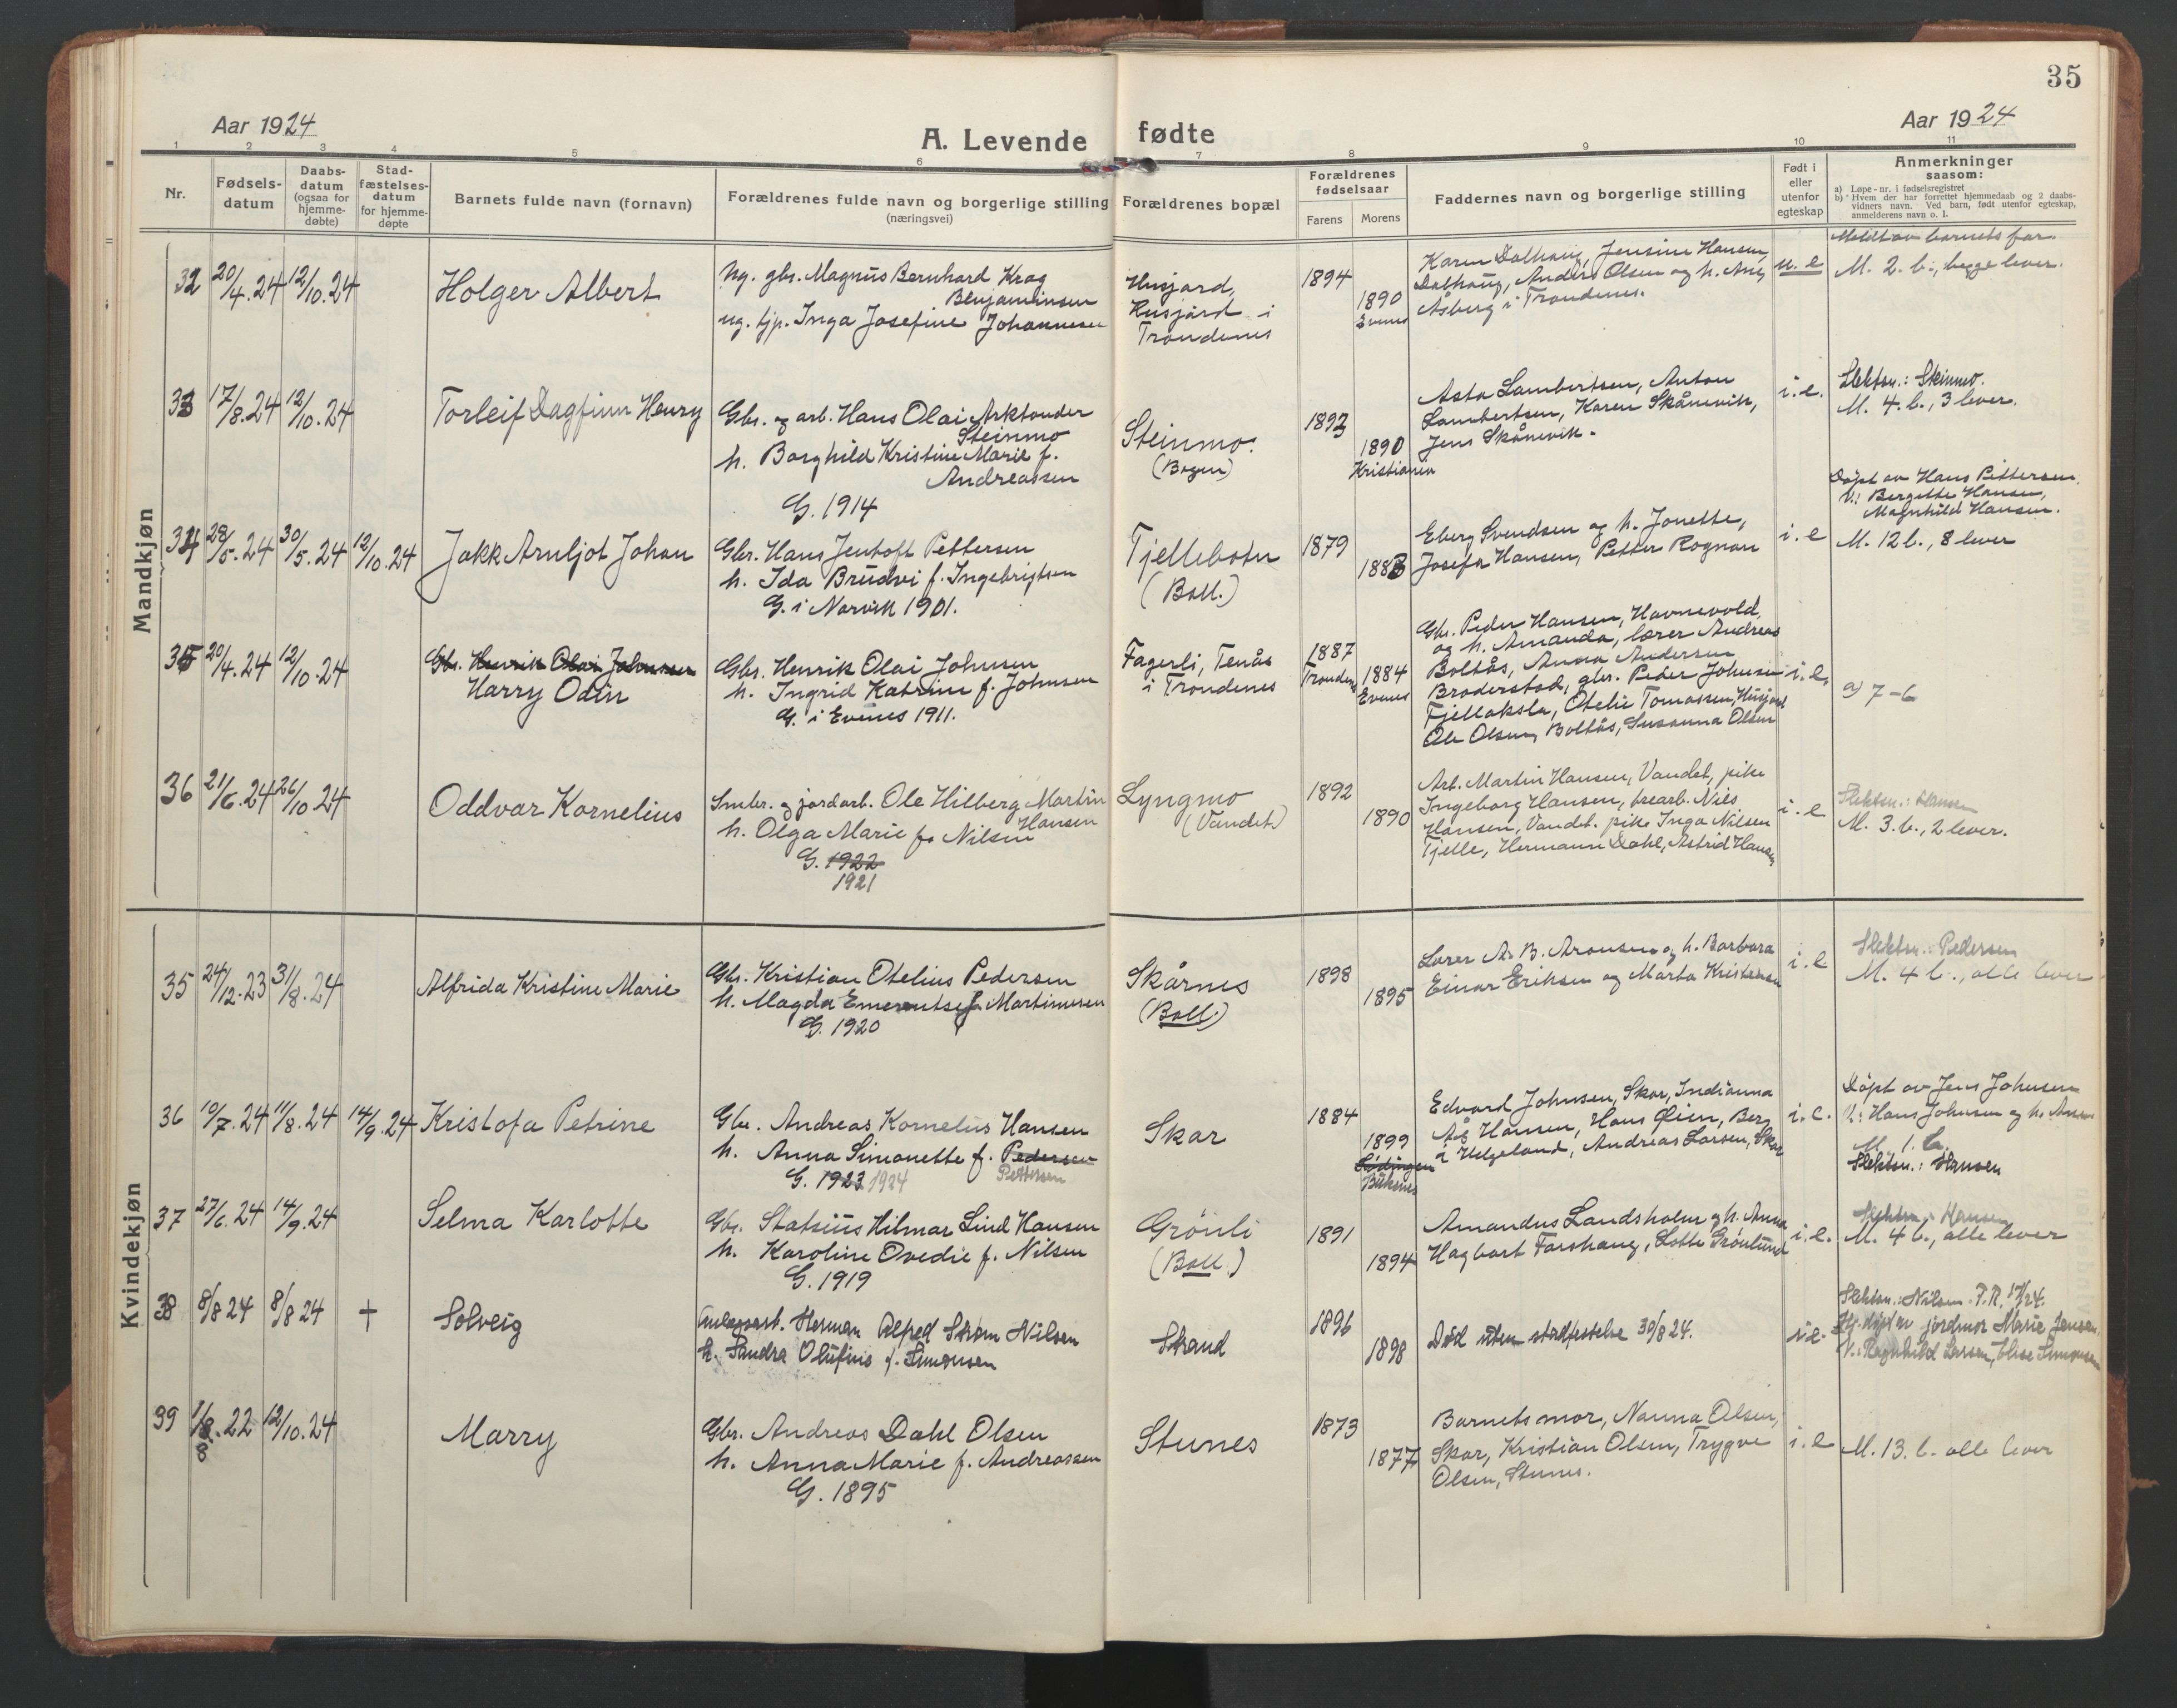 35
Aar 1924
A. Levende fødte
Aar 1924
1 2 3 4 5 6 7 8 9 10 11
Nr.
Fødsels-
datum
Daabs-
datum
(ogsaa for
hjemme-
døbte)
Stad-
fæstelses-
datum
for hjemme-
døpte
Barnets fulde navn (fornavn)
Forældrenes fulde navn og borgerlige stilling
(næringsvei)
Forældrenes bopæl
Forældrenes
fødselsaar
Farens Morens
Faddernes navn og borgerlige stilling
Født i
eller
utenfor
egteskap
Anmerkninger
saasom:
a) Løpe-nr. i fødselsregistret
b) Hvem der har forrettet hjemmedaab og 2 daabs-
vidners navn. Ved barn, født utenfor egteskap,
anmelderens navn o. l.
Mandkjøn
32 20/4.24 12/10.24
Holger Albert
Ug. gbr. Magnus Bernhard Krog
Benjaminsen
ug. tjp. Inga Josefine Johannesen
Husjord,
Husjord i
Trondenes
1894
1890
Evenes
Karen Dalhaug, Jensine Hansen,
Dalhaug, Anders Olsen og h. Ane,
Åsberg i Trondenes.
u. e
Meldt av barnets far.
M. 2. b., begge lever.
33 17/8.24 12/10.24
Torleif Dagfinn Henry
Gbr. og arb. Hans Olai Arktander
Steinmo
h. Borghild Kristine Marie f.
Andreassen
G. 1914
Steinmo.
(Bogen)
1893
1890
Kristiania
Asta Lambertsen, Anton
Lambertsen, Karen Skånevik,
Jens Skånevik.
i. e.
Slektsn.: Steinmo.
M. 4. b., 3 lever.
34 28/5.24 30/5.24 12/10.24
Jakk Arnljot Johan
Gbr. Hans Jentoft Pettersen
h. Ida Brudvi f. Ingebrigtsen
G. i Narvik 1901.
Tjellebotn
(Ball.)
1879
1883
Eberg Svendsen og h. Jonette,
Josefa Hansen, Petter Rognan
i. e
Døpt av Hans Pettersen.
V.: Bergitte Hansen,
Magnhild Hansen.
M. 12 b., 8 lever
35 20/4.24 12/10.24
Gbr. Henrik Olai Johnsen
Harry Odin
Gbr. Henrik Olai Johnsen
h. Ingrid Katrine f. Johnsen
G. i Evenes 1911.
Fagerli, Tenås
i Trondenes
1887
Trondenes
1884
Evenes
Gbr. Peder Hansen, Havnevold,
og h. Amanda, lærer Andreas
Boltås, Anna Andersen
Broderstad, gbr. Peder Johnsen
Fjellaksla, Otelie Tomassen, Husjord
Ole Olsen, Boltås, Susanna Olsen
i. e.
a) 7-6
36 21/6.24 26/10 24
Oddvar Kornelius
Smbr. og jordarb. Ole Hilberg Martin
Hansen
h. Olga Marie f. Nilsen
G. 1922
1921
Lyngmo
(Vandet)
1892
1890
Arb. Martin Hansen, Vandet, pike
Ingeborg Hansen, trearb. Nils
Hansen, Vandet. pike Inga Nilsen
Tjelle, Hermann Dahl, Astrid Hansen
i. e
Slektsn.: Hansen
M. 3. b., 2 lever.
Kvindekjøn
35 24/12.23 31/8.24
Alfrida Kristine Marie
Gbr. Kristian Otelius Pedersen
h. Magda Emerentse f. Martinusen
G. 1920
Skårnes
(Ball.)
1898
1895
Lærer A. B. Aronsen og h. Barbara
Einar Eriksen og Marta Kristensen
i. e
Slektsn.: Pedersen
M. 4 b., alle lever
36 19/7.24 11/8.24 14/9.24
Kristofa Petrine
Gbr. Andreas Kornelius Hansen
h. Anna Simonette f. Pedersen
Pettersen
G. 1923 1924
Skar
1884
1899
Lødingen
Buksnes
Edvard Johnsen, Skar, Indianna
Hansen, Hans Øien, Berg
i Helgeland, Andreas Larsen, Skar
i. e.
Døpt av Jens Johnsen
V.: Hans Johnsen og h. Anna
M. 1. b.
Slektsn.: Hansen
37 27/6.24 14/9.24
Selma Karlotte
Gbr. Statsius Hilmar Lind Hansen
h. Karoline Ovedie f. Nilsen
G. 1919
Grønli
(Ball.)
1891
1894
Amandus Landsholm og h. Anna
Hagbart Forshaug, Lotte Grønlund
i. e.
Slektsn.: Hansen
M. 4 b., alle lever
38 8/8 24 8/8 24 +
Solveig
Anleggsarb. Herman Alfred Strøm Nilsen
h. Sandra Olufine f. Simonsen
Strand
1896
1898
Død uten stadfestelse 30/8 24.
i e.
Slektsn.: Nilsen F.R. 17/24.
Hj. døpt av jordmor Marie Jensen.
V.: Ragnhild Larsen, Elise Simonsen
39 1/8.22 12/10.24
8
Marry
Gbr. Andreas Dahl Olsen
h. Anna Marie f. Andreassen
G. 1895
Stunes
1873
1877
Barnets mor, Nanna Olsen,
Skar, Kristian Olsen, Trygve
Olsen, Stunes.
i. e
M. 13. b. alle lever